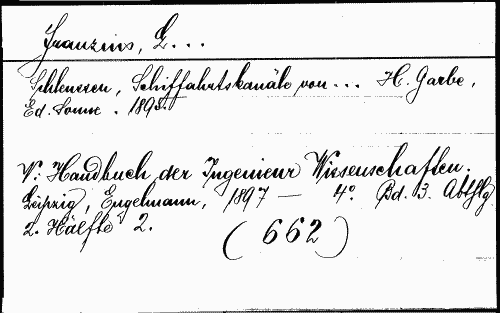 Franzius, L...
Schleusen, Schiffahrtskanäle von... H. Garbe,
Ed. Sonne. 1895.
V: Handbuch der Ingenieur Wissenschaften.
Leipzig, Engelmann, 1897 — 4º. Bd. 3. Abthlg
2. Hälfte 2.
(662)